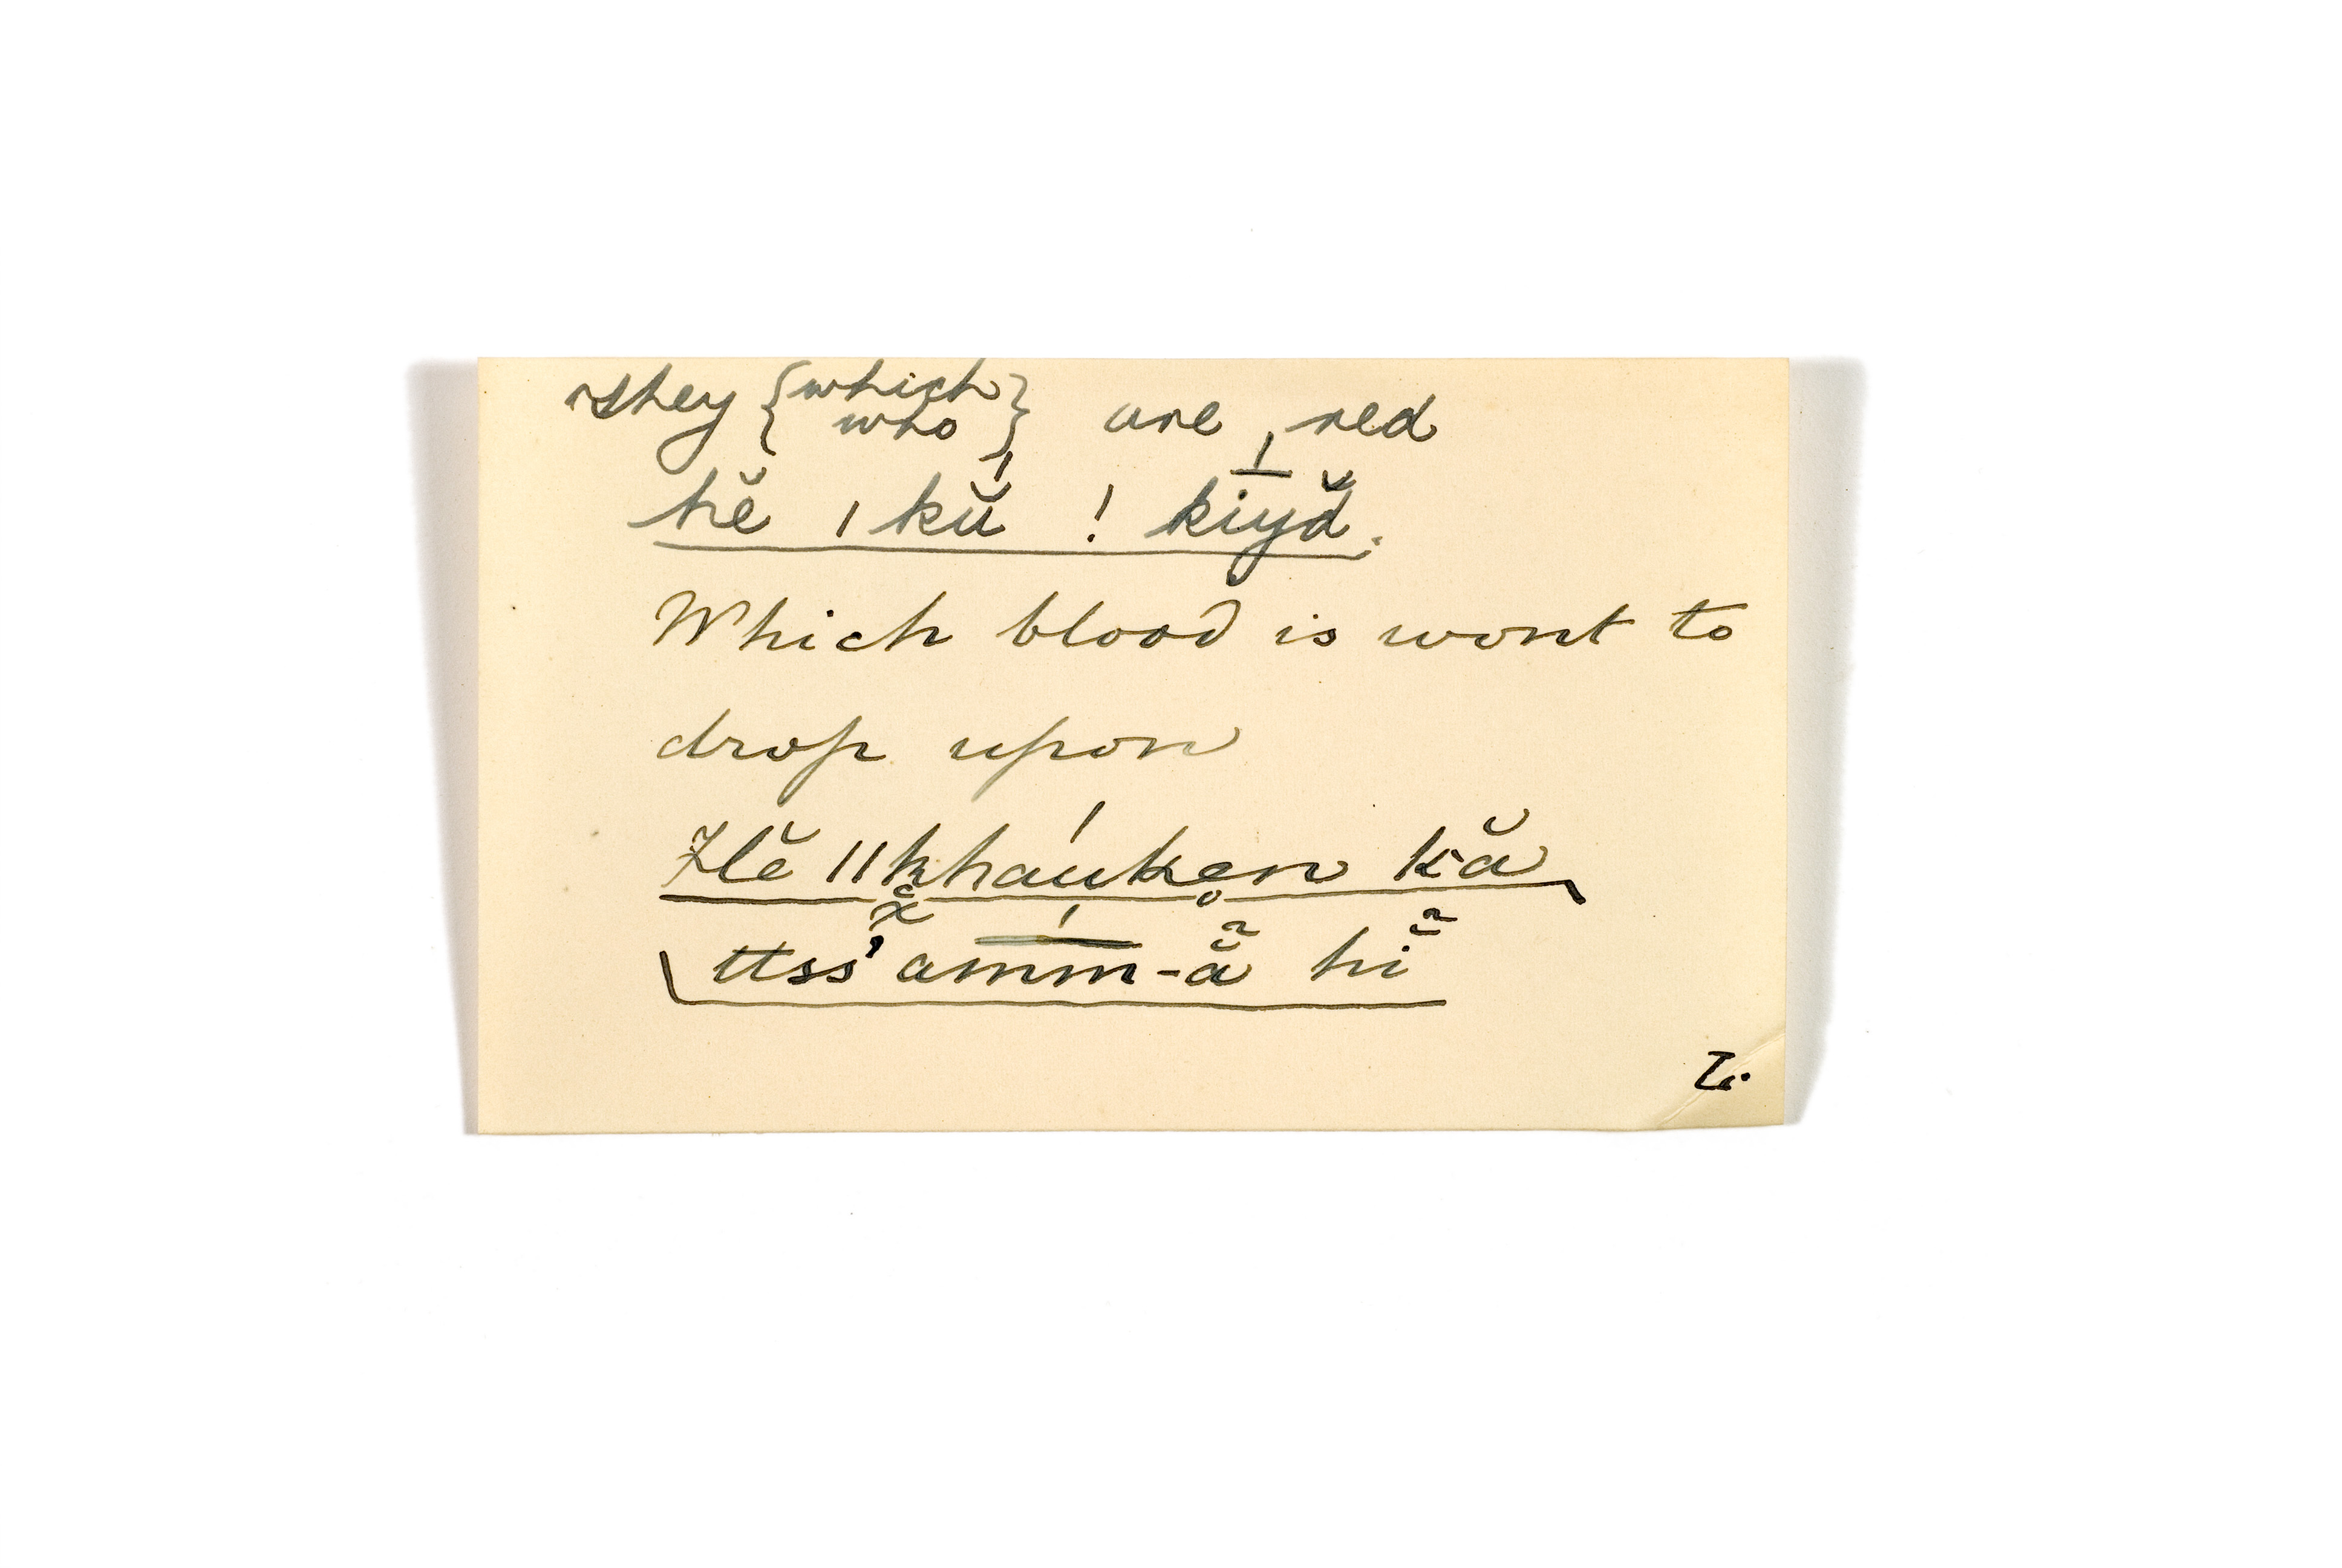 they {which} are red
{who}
hĕ ǀ kŭ́ ! kī́yă.
Which blood is wont to
drop upon
Hĕ ǁkhaúken kă
ttss'ámm-ă hĭ